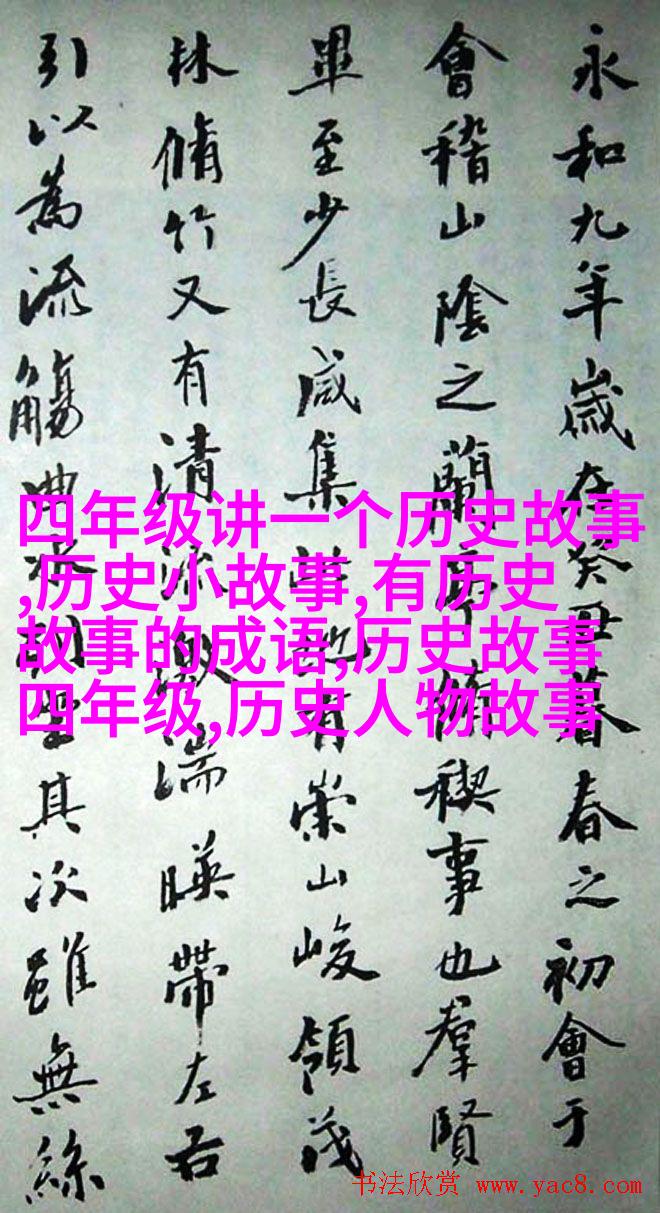 永和九年歲在癸丑暮春之初會于
會稽山陰之蘭亭脩稧事也羣賢
畢至少長咸集此地有崇山峻領茂
林脩竹又有清流激湍暎帶左右
引以為流觴曲水列坐其次雖無絲
四年级讲一个历史故事
,历史小故事,有历史
故事的成语,历史故事
四年级,历史人物故事
书法欣赏 www.yac8.com